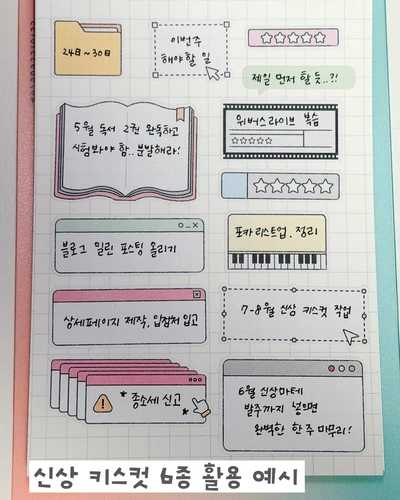 24일~30일
이번주
해야할 일
제일 먼저 할 듯..?!
5월 독서 2권 완독하고
시험봐야 함.. 분발해라!
위버스라이브 복습
블로그 밀린 포스팅 올리기
포카 리스트업, 정리
상세페이지 제작, 입점처 입고
7-8월 신상 키스컷 작업
종소세 신고
6월 신상마테
발주까지 넣으면
완벽한 한 주 마무리!
신상 키스컷 6종 활용 예시